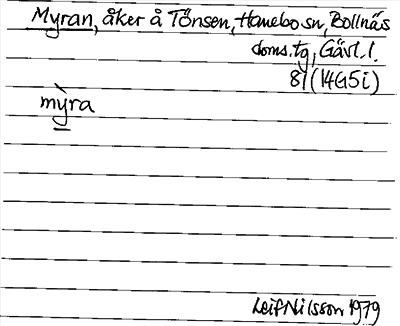 Myran, åker å Tönsen, Hanebo sn, Bollnäs
doms.tg, Gävl.l.
81(14G5i)
mỳra
Leif Nilsson 1979